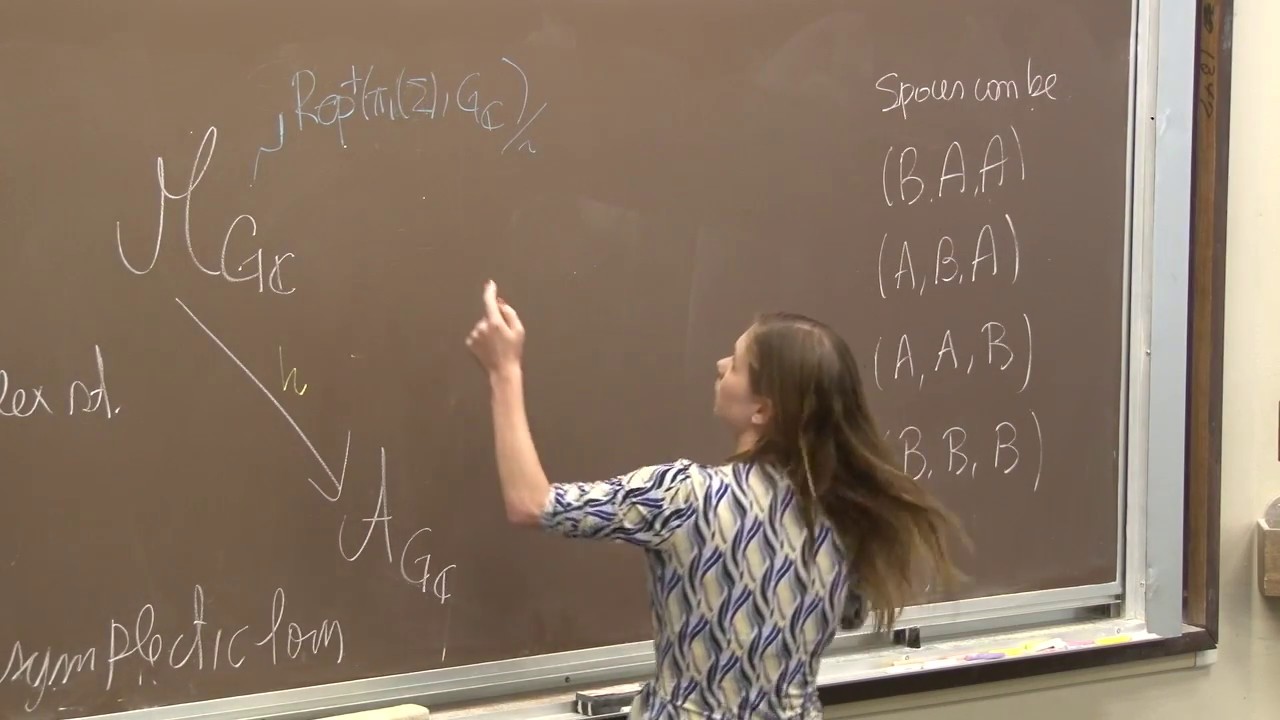 Rep⁺(π₁(Σ), G_ℂ)/~
M_{G_ℂ}
h
A_{G_ℂ}
lex st.
symplectic form
Spaces can be
(B,A,A)
(A,B,A)
(A,A,B)
(B,B,B)